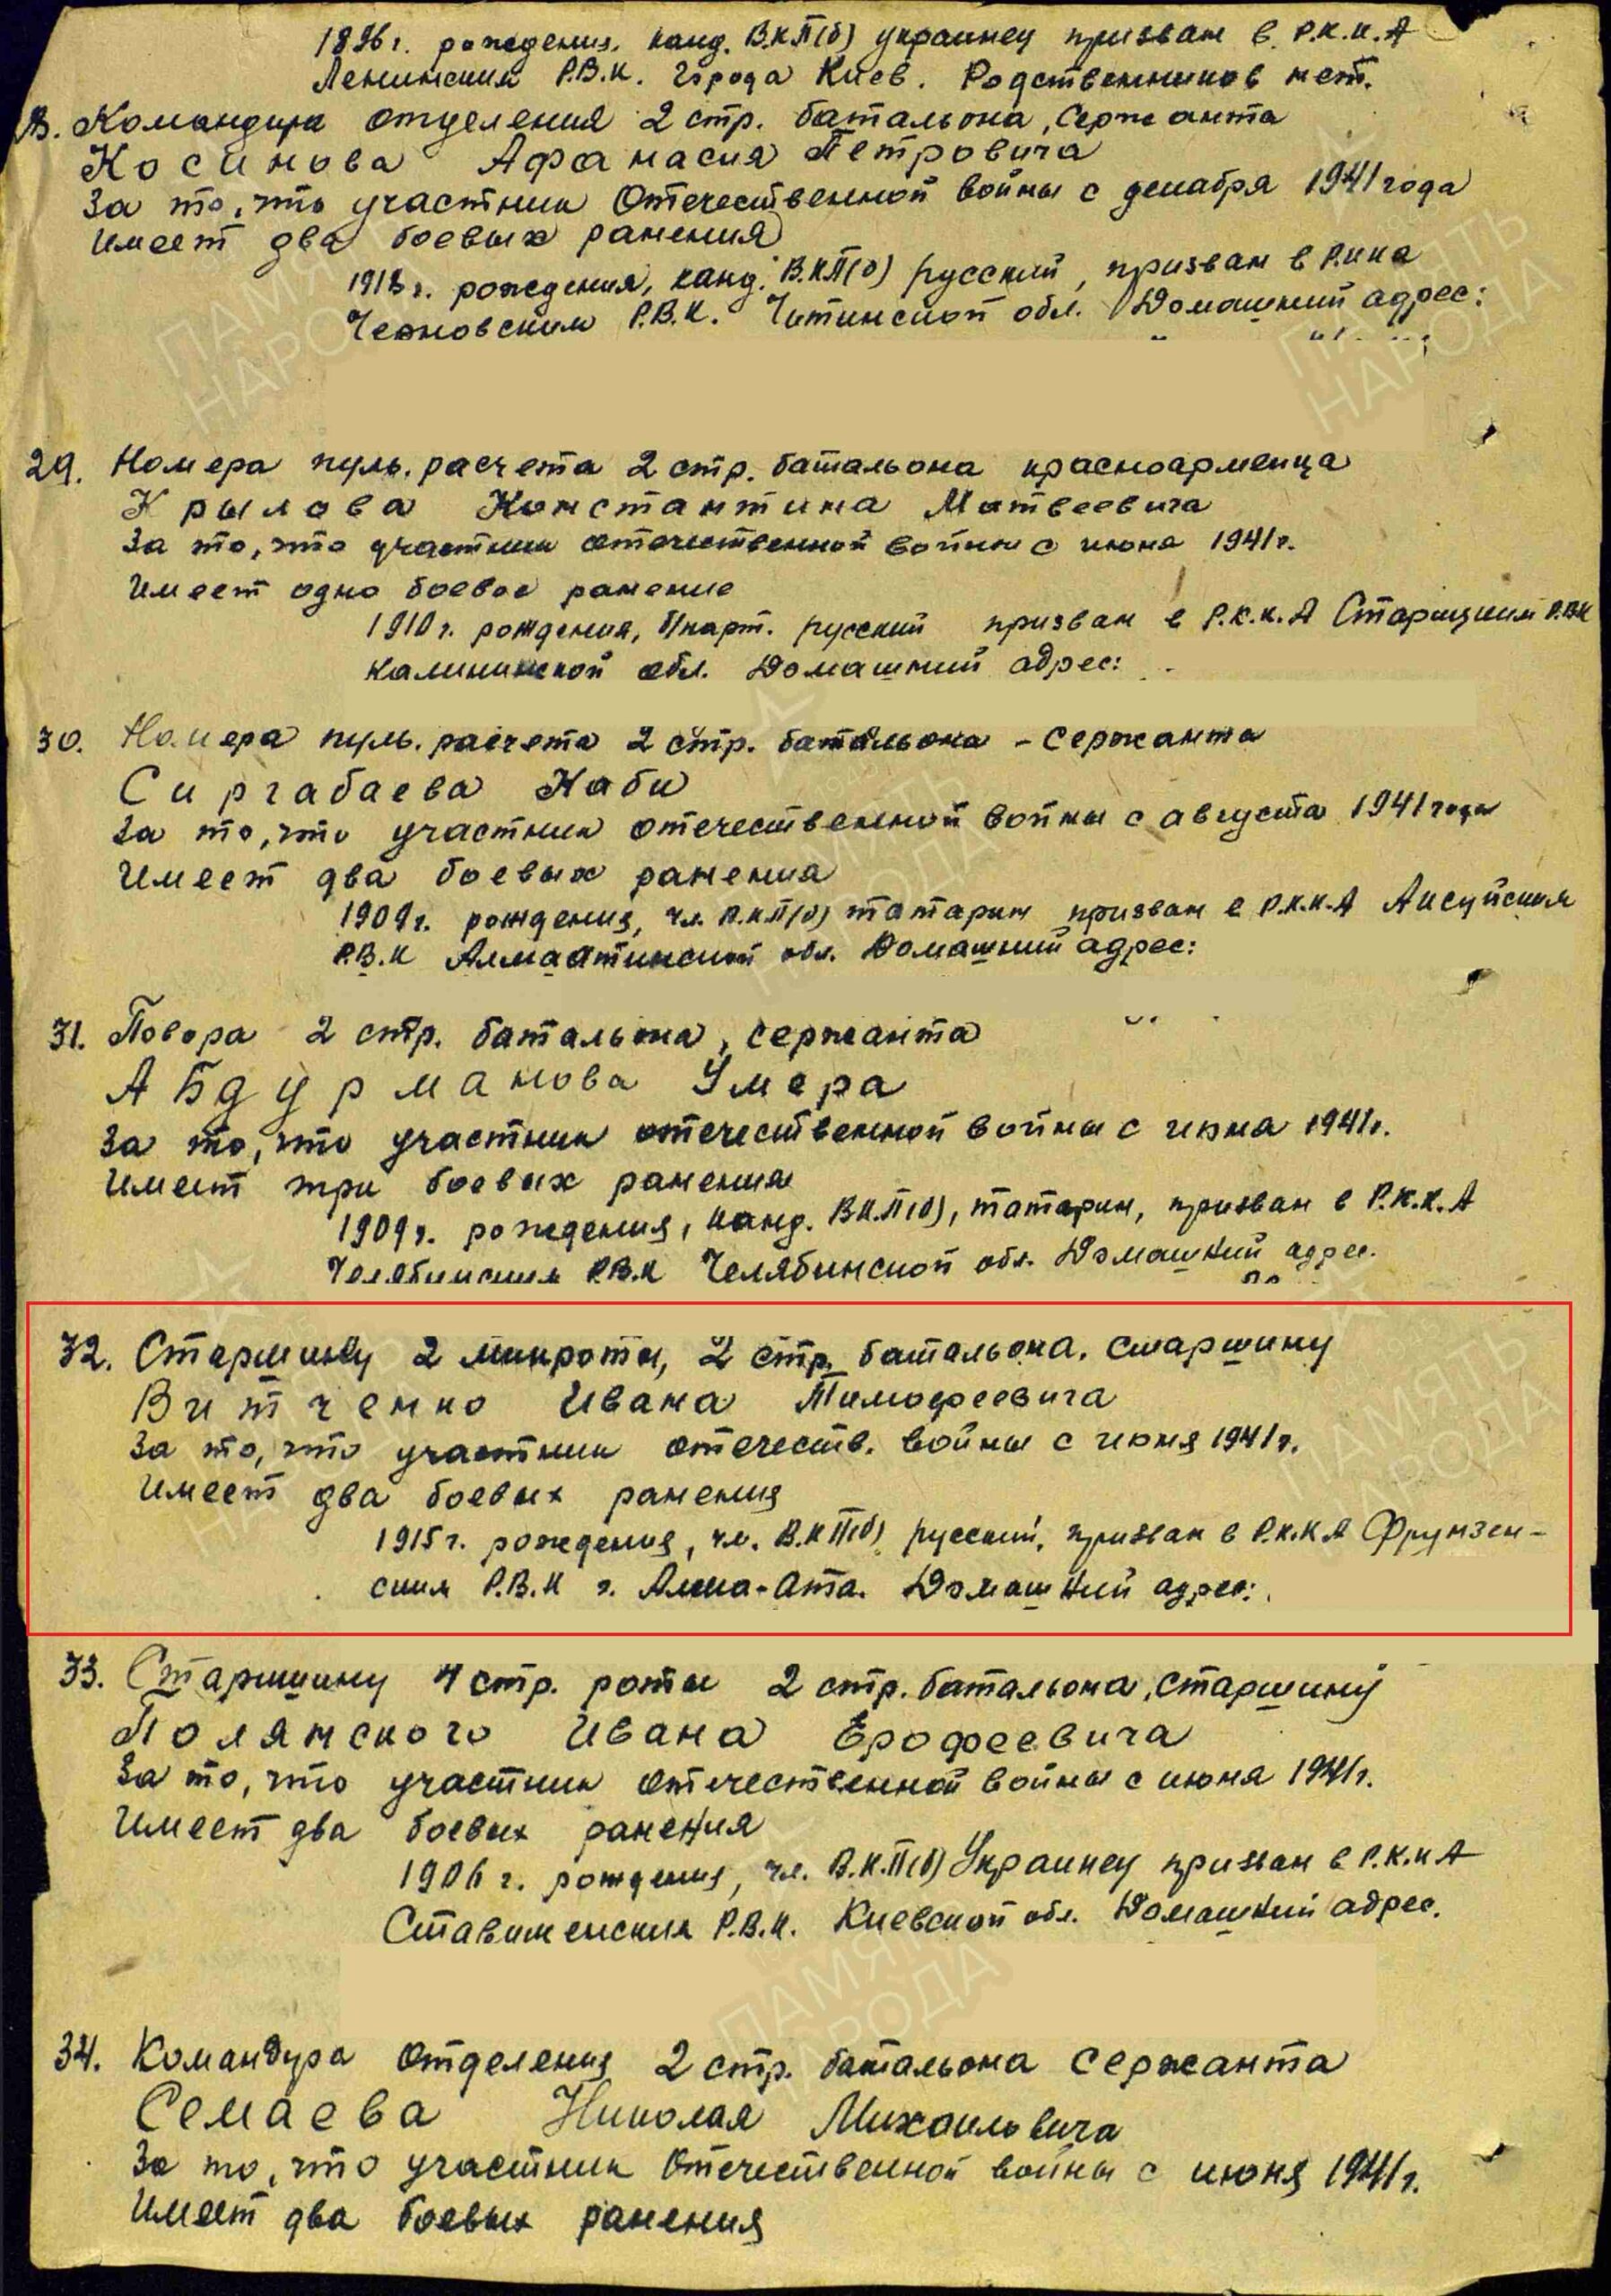 1896 г. рождения. канд. В.К.П(б) украинец призван в Р.К.К.А
Ленинским Р.В.К. города Киев. Родственников нет.
Командира отделения 2 стр. батальона, Сержанта
Косинова Афанасия Петровича
За то, что участник Отечественной войны с декабря 1941 года
Имеет два боевых ранения
1918 г. рождения, канд. В.К.П(б) русский, призван в Р.К.К.А
Черновским Р.В.К. Читинской обл. Домашний адрес:
29. Номера пуль. расчета 2 стр. батальона красноармейца
Крылова Константина Матвеевича
За то, что участник отечественной войны с июня 1941 г.
Имеет одно боевое ранение
1910 г. рождения, б/парт. русский призван в Р.К.К.А Старицким Р.В.К
Калининской обл. Домашний адрес:
30. Номера пуль. расчета 2 стр. батальона - Сержанта
Сиргабаева Наби
За то, что участник отечественной войны с августа 1941 года
Имеет два боевых ранения
1909 г. рождения, чл. В.К.П(б) татарин призван в Р.К.К.А Аксуйским
Р.В.К Алмаатинской обл. Домашний адрес:
31. Повара 2 стр. батальона, Сержанта
Абдурманова Умера
За то, что участник отечественной войны с июня 1941 г.
Имеет три боевых ранения
1909 г. рождения, канд. ВК.П(б), татарин, призван в Р.К.К.А
Челябинским Р.В.К Челябинской обл. Домашний адрес.
32. Старшину 2 минроты, 2 стр. батальона. старшину
Витченко Ивана Тимофеевича
За то, что участник отечеств. войны с июня 1941 г.
Имеет два боевых ранения
1915 г. рождения, чл. В.К.П(б) русский, призван в Р.К.К.А Фрунзен-
ским Р.В.К г. Алма-Ата. Домашний адрес:
33. Старшину 4 стр. роты 2 стр. батальона, старшину
Полянского Ивана Ерофеевича
За то, что участник отечественной войны с июня 1941 г.
Имеет два боевых ранения
1906 г. рождения, чл. В.К.П(б) Украинец призван в Р.К.К.А
Ставищенским Р.В.К. Киевской обл. Домашний адрес.
34. Командира Отделения 2 стр. батальона Сержанта
Семаева Николая Михайловича
За то, что участник Отечественной войны с июня 1941 г.
Имеет два боевых ранения
ПАМЯТЬ
НАРОДА